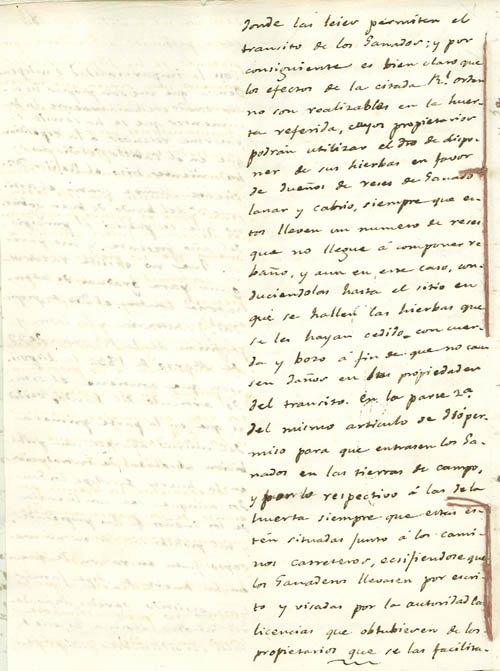 donde las leies permiten el
transito de los Ganados; y por
consiguiente es bien claro que
los efectos de la citada Rl. orden
no son realizables en la huer-
ta referida, cuyos propietarios
podrán utilizar el dro de dispo-
ner de sus hierbas en favor
de dueños de reses de Ganado
lanar y cabrio, siempre que en-
tos lleven un numero de reses
que no llegue á componer re
baño, y aun en este caso, con-
duciendolas hasta el sitio en
que se hallen las hierbas que
se les hayan cedido, con cuer-
da y bozo á fin de que no cau
sen daños en las propiedades
del transito. En la parte 2a.
del mismo articulo se dió per-
miso para que entrasen los Ga-
nados en las tierras de campo,
y por lo respectivo á las de la
huerta siempre que estas es-
tén situadas junto á los cami-
nos carreteros, ecsijiendose que
los Ganaderos llevasen por escri-
to y visadas por la autoridad las
licencias que obtubiesen de los
propietarios que se las facilita-